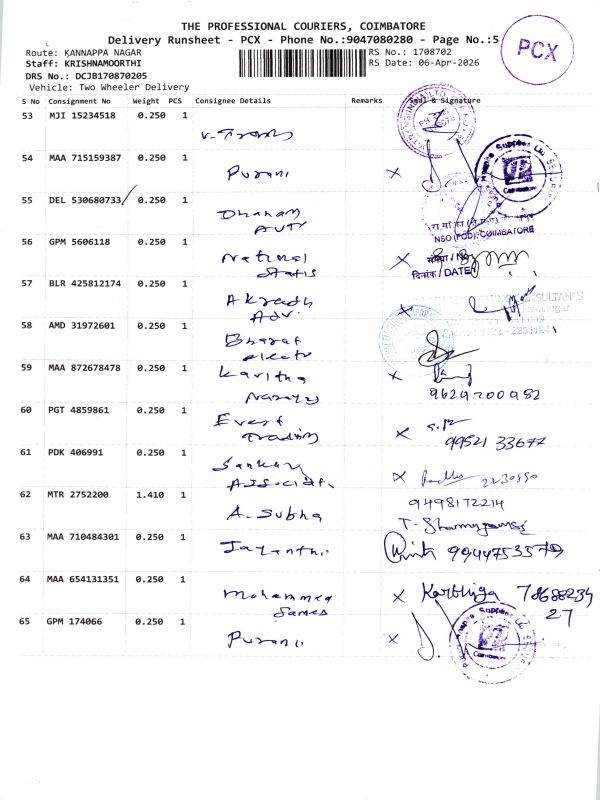 THE PROFESSIONAL COURIERS, COIMBATORE
Delivery Runsheet - PCX - Phone No.:9047080280 - Page No.:5
PCX
Route: KANNAPPA NAGAR
RS No.: 1708702
Staff: KRISHNAMOORTHI
RS Date: 06-Apr-2026
DRS No.: DCJB170870205
Vehicle: Two Wheeler Delivery
S No Consignment No Weight PCS Consignee Details Remarks Seal & Signature
53 MJI 15234518 0.250 1
54 MAA 715159387 0.250 1
Purani X
55 DEL 530680733 0.250 1
Dhanam
Auto
NSO (POD), COIMBATORE
56 GPM 5606118 0.250 1
National X
दिनांक / DATE
57 BLR 425812174 0.250 1
Adv. X
58 AMD 31972601 0.250 1
Bharat
electro
59 MAA 872678478 0.250 1
Kavitha X
9629700982
60 PGT 4859861 0.250 1
Everst X
Trading 99521 33677
61 PDK 406991 0.250 1
Sankar
Associat. X 2230890
62 MTR 2752200 1.410 1
9498172214
A. Subha
63 MAA 710484301 0.250 1
Jayanthi 9944753579
64 MAA 654131351 0.250 1
Mohammed X Karthiga 78688234
James 27
65 GPM 174066 0.250 1
Purani. X